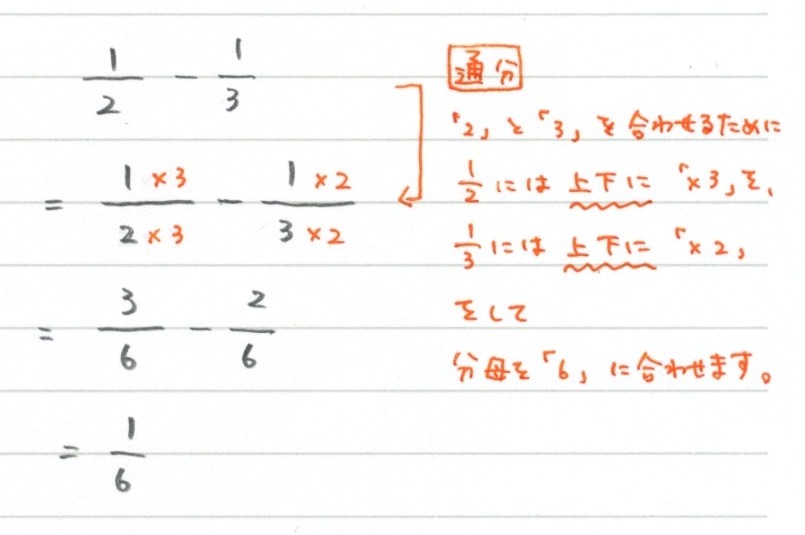 1/2 - 1/3
= 1×3/2×3 - 1×2/3×2
= 3/6 - 2/6
= 1/6
通分
「2」と「3」を合わせるために
1/2には上下に「×3」を、
1/3には上下に「×2」
をして
分母を「6」に合わせます。